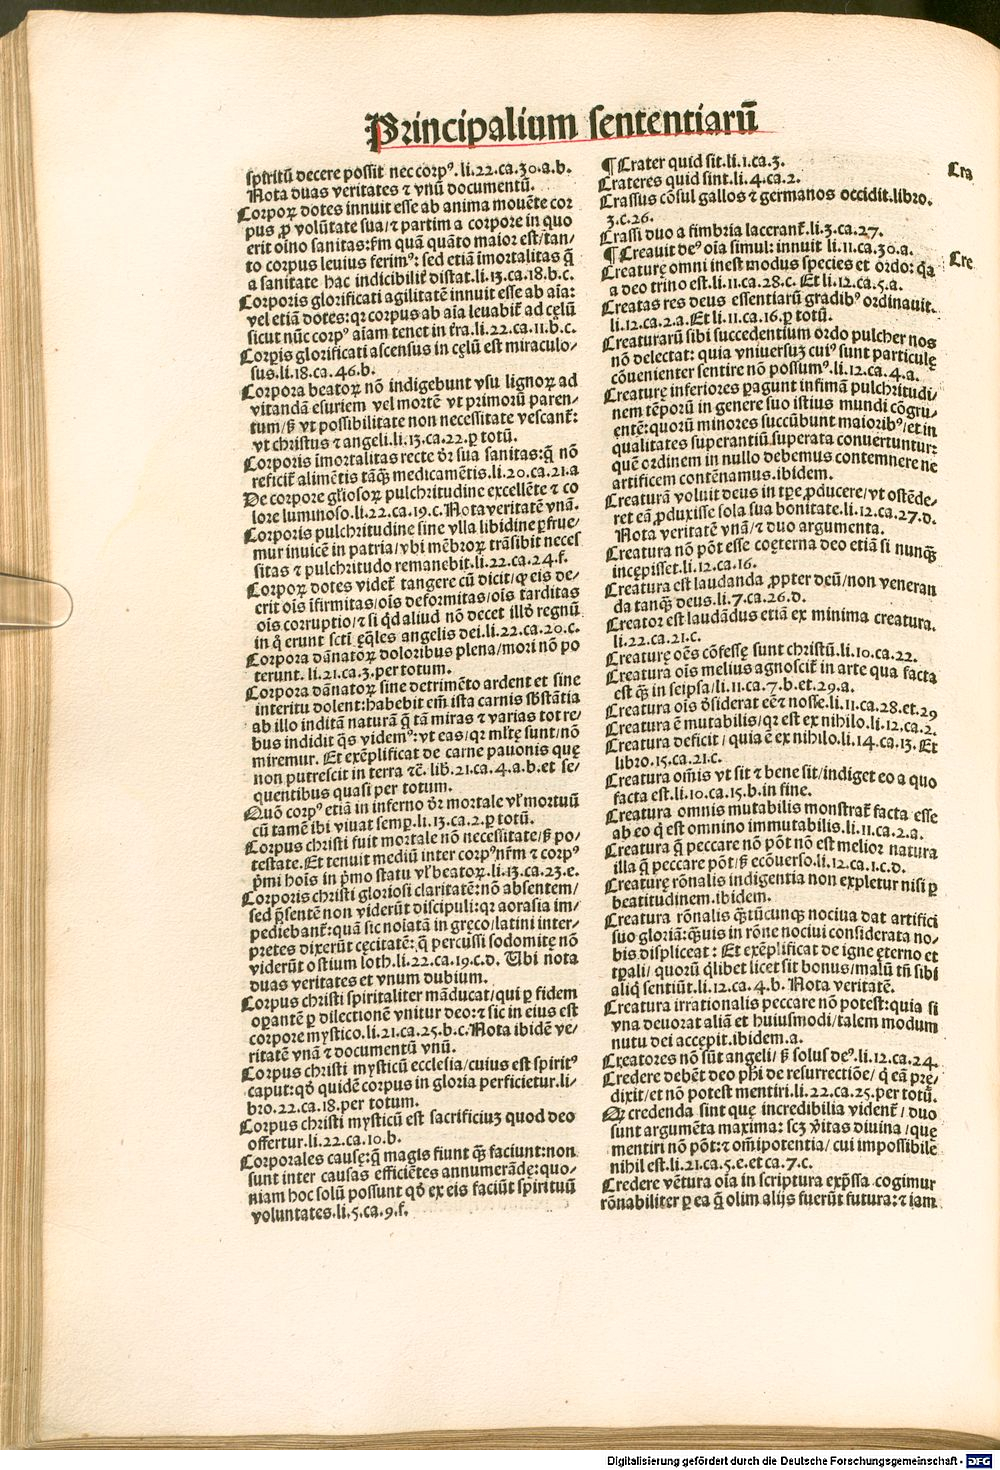 Principalium sententiarū
spiritū decere possit nec corpꝰ.li.22.ca.30.a.b.
Nota duas veritates ⁊ vnū documentū.
Corpoꝝ dotes innuit esse ab anima mouēte cor
pus ꝓ volūtate sua/⁊ partim a corpore in quo
erit oīno sanitas:ẜm quā quāto maior est/tan/
to corpus leuius ferimꝰ: sed etiā īmortalitas q̄
a sanitate hac indicibilit̄ distat.li.13.ca.18.b.c.
Corporis glorificati agilitatē innuit esse ab aīa:
vel etiā dotes:qꝛ corpus ab aīa leuabit̄ ad cęlū
sicut nūc corpꝰ aīam tenet in t̄ra.li.22.ca.11.b.c.
Corꝑis glorificati ascensus in cęlū est miraculo/
sus.li.18.ca.46.b.
Corpora beatoꝝ nō indigebunt vsu lignoꝝ ad
vitandā esuriem vel mortē vt primorū paren/
tum/ꝫ vt possibilitate non necessitate vescant̄:
vt christus ⁊ angeli.li.13.ca.22.ꝑ totū.
Corporis īmortalitas recte d̄r sua sanitas:q̄ nō
reficit̄ alimētis tāqꝫ medicamētis.li.20.ca.21.a
De corpore gl̄iosoꝝ pulchritudine excellēte ⁊ co
lore luminoso.li.22.ca.19.c.Nota veritatē vnā.
Corporis pulchritudine sine vlla libidine ꝑfrue/
mur inuicē in patria/vbi mēbroꝝ trāsibit neces
sitas ⁊ pulchritudo remanebit.li.22.ca.24.f.
Corpoꝝ dotes videt̄ tangere cū dicit/ꝙ eis de/
erit oīs īfirmitas/oīs deformitas/oīs tarditas
oīs corruptio/⁊ si qd aliud nō decet illd̄ regnū
in q̊ erunt sc̄ti ęq̄les angelis dei.li.22.ca.20.c.
Corpora dānatoꝝ doloribus plena/mori nō po
terunt. li.21.ca.3.per totum.
Corpora dānatoꝝ sine detrimēto ardent et sine
interitu dolent:habebit em̄ ista carnis sb̄stātia
ab illo inditā naturā q̄ tā miras ⁊ varias tot re/
bus indidit q̄s videmꝰ:vt eas/qꝛ ml̄tę sunt/nō
miremur. Et exēplificat de carne pauonis quę
non putrescit in terra ⁊c̄. lib.21.ca.4.a.b.et se/
quentibus quasi per totum.
Quō corpꝰ etiā in inferno d̄r mortale vl̄ mortuū
cū tamē ibi viuat semꝑ.li.13.ca.2.ꝑ totū.
Corpus christi fuit mortale nō necessitate/ꝫ po/
testate.Et tenuit mediū inter corpꝰ nr̄m ⁊ corpꝰ
p̄mi hoīs in p̄mo statu vl̄ beatoꝝ.li.13.ca.23.e.
Corporis christi gloriosi claritatē:nō absentem/
sed p̄sentē non viderūt discipuli:qꝛ aorasia im/
pediebant̄:quā sic noīatā in gręco/latini inter/
pretes dixerūt cęcitatē:q̄ percussi sodomitę nō
viderūt ostium loth.li.22.ca.19.c.d. Vbi nota
duas veritates et vnum dubium.
Corpus christi spiritaliter māducat/qui ꝑ fidem
oꝑantē ꝑ dilectionē vnitur deo:⁊ sic in eius est
corpore mystico.li.21.ca.25.b.c.Nota ibidē ve/
ritatē vnā ⁊ documentū vnū.
Corpus christi mysticū ecclesia/cuius est spiritꝰ
caput:qō quidē corpus in gloria perficietur.li/
bro.22.ca.18.per totum.
Corpus christi mysticū est sacrificiuꝫ quod deo
offertur.li.22.ca.10.b.
Corporales causę:q̄ magis fiunt qꝫ faciunt:non
sunt inter causas efficiētes annumerādę:quo/
niam hoc solū possunt qō ex eis faciūt spirituū
voluntates.li.5.ca.9.f.
¶ Crater quid sit.li.1.ca.3.
Crateres quid sint.li.4.ca.2.
Crassus cōsul gallos ⁊ germanos occidit.libro.
3.c.26.
Crassi duo a fimbria lacerant̄.li.3.ca.27.
¶ Creauit deꝰ oīa simul: innuit li.11.ca.30.a.
Creaturę omni inest modus species et ordo: q̄a
a deo trino est.li.11.ca.28.c. Et li.12.ca.5.a.
Creatas res deus essentiarū gradibꝰ ordinauit.
li.12.ca.2.a.Et li.11.ca.16.ꝑ totū.
Creaturarū sibi succedentium ordo pulcher nos
nō delectat: quia vniuersuꝫ cuiꝰ sunt particulę
cōuenienter sentire nō possumꝰ.li.12.ca.4.a.
Creaturę inferiores ꝑagunt infimā pulchritudi/
nem tēporū in genere suo istius mundi cōgru/
entē:quorū minores succūbunt maioribꝰ/et in
qualitates superantiū superata conuertuntur:
quē ordinem in nullo debemus contemnere ne
artificem contēnamus.ibidem.
Creaturā voluit deus in tꝑe ꝓducere/vt ostēde/
ret eā ꝓduxisse sola sua bonitate.li.12.ca.27.d.
Nota veritatē vnā/⁊ duo argumenta.
Creatura nō pōt esse coęterna deo etiā si nunqꝫ
incępisset.li.12.ca.16.
Creatura est laudanda ꝓpter deū/non veneran
da tanqꝫ deus.li.7.ca.26.d.
Creator est laudādus etiā ex minima creatura.
li.22.ca.21.c.
Creaturę oēs cōfessę sunt christū.li.10.ca.22.
Creatura oīs melius agnoscit̄ in arte qua facta
est qꝫ in seipsa/li.11.ca.7.b.et.29.a.
Creatura oīs d̄siderat eē ⁊ nosse.li.11.ca.28.et.29
Creatura ē mutabilis/qꝛ est ex nihilo.li.12.ca.2.
Creatura deficit/quia ē ex nihilo.li.14.ca.13. Et
libro.15.ca.21.c.
Creatura om̄is vt sit ⁊ bene sit/indiget eo a quo
facta est.li.10.ca.15.b.in fine.
Creatura omnis mutabilis monstrat̄ facta esse
ab eo q̄ est omnino immutabilis.li.11.ca.2.a.
Creatura q̄ peccare nō pōt nō est melior natura
illa q̄ peccare pōt/ꝫ ecōuerso.li.12.ca.1.c.d.
Creaturę rōnalis indigentia non expletur nisi ꝑ
beatitudinem.ibidem.
Creatura rōnalis qꝫtūcunqꝫ nociua dat artifici
suo gloriā:qꝫuis in rōne nociui considerata no/
bis displiceat: Et exēplificat de igne ęterno et
tꝑali/ quorū q̄libet licet sit bonus/malū tn̄ sibi
aliq̄ sentiūt.li.12.ca.4.b. Nota veritatē.
Creatura irrationalis peccare nō potest:quia si
vna deuorat aliā et huiusmodi/talem modum
nutu dei accępit.ibidem.a.
Creatores nō sūt angeli/ꝫ solus deꝰ.li.12.ca.24.
Credere debēt deo phi de resurrectiōe/q̇ eā prę/
dixit/et nō potest mentiri.li.22.ca.25.per totū.
Qꝛ credenda sint quę incredibilia vident̄/duo
sunt argumēta maxima: scꝫ v̄itas diuina/quę
mentiri nō pōt:⁊ om̄ipotentia/cui impossibile
nihil est.li.21.ca.5.e.et ca.7.c.
Credere vētura oīa in scriptura exp̄ssa cogimur
rōnabiliter ꝑ ea q̄ olim alijs fuerūt futura:⁊ iam
Cra
Cre
Digitalisierung gefördert durch die Deutsche Forschungsgemeinschaft - DFG